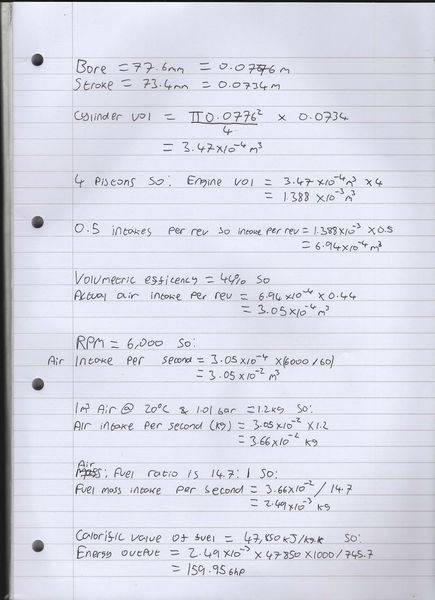 Bore = 77.6mm = 0.0776m
Stroke = 73.4mm = 0.0734m
Cylinder vol = π0.0776² / 4 × 0.0734
= 3.47×10⁻⁴ m³
4 Pistons so: Engine vol = 3.47×10⁻⁴m³ ×4
= 1.388 ×10⁻³ m³
0.5 intakes per rev so intake per rev = 1.388×10⁻³ ×0.5
= 6.94×10⁻⁴ m³
Volumetric efficency = 44% so
Actual air intake per rev = 6.94×10⁻⁴ × 0.44
= 3.05×10⁻⁴ m³
RPM = 6,000 so:
Air Intake per second = 3.05×10⁻⁴ ×(6000/60)
= 3.05×10⁻² m³
1m³ Air @ 20°C & 1.01 bar = 1.2kg so:
Air intake per second (kg) = 3.05×10⁻² ×1.2
= 3.66×10⁻² kg
Air : Fuel ratio is 14.7:1 so:
Fuel mass intake per second = 3.66×10⁻² / 14.7
= 2.49×10⁻³ kg
Calorific value of fuel = 47,850 kJ/kg.k so:
Energy output = 2.49×10⁻³ ×47850×1000/745.7
= 159.95bhp